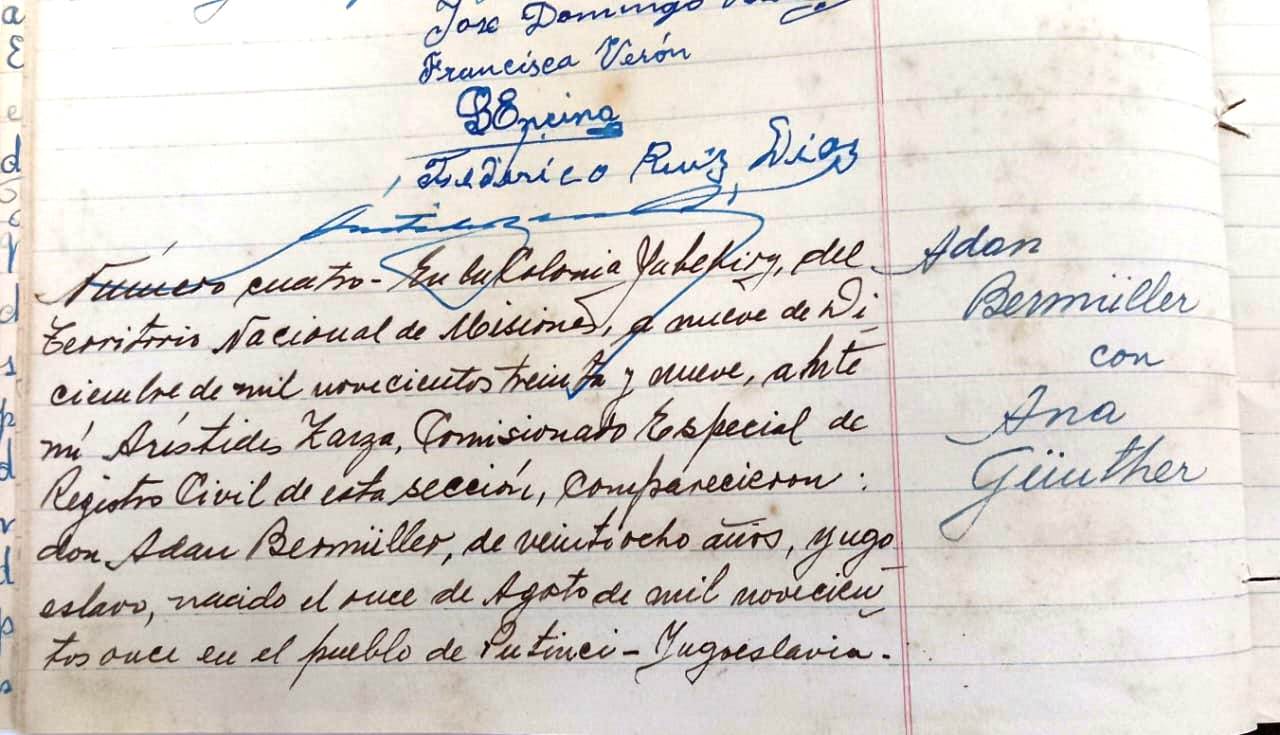 José Domingo
Francisca Verón
BEncina
Federico Ruíz Diaz
Número cuatro- En la Colonia Yabebiry, del
Territorio Nacional de Misiones, a nueve de Di
ciembre de mil novecientos treinta y nueve, ahte
mi Arístides Zarza, Comisionado Especial de
Registro Civil de esta sección, comparecieron:
don Adan Bermüller, de veintiocho años, yugo
eslavo, nacido el once de Agosto de mil novecien
tos once en el pueblo de Putinci-Yugoeslavia.
Adan
Bermüller
con
Ana
Günther